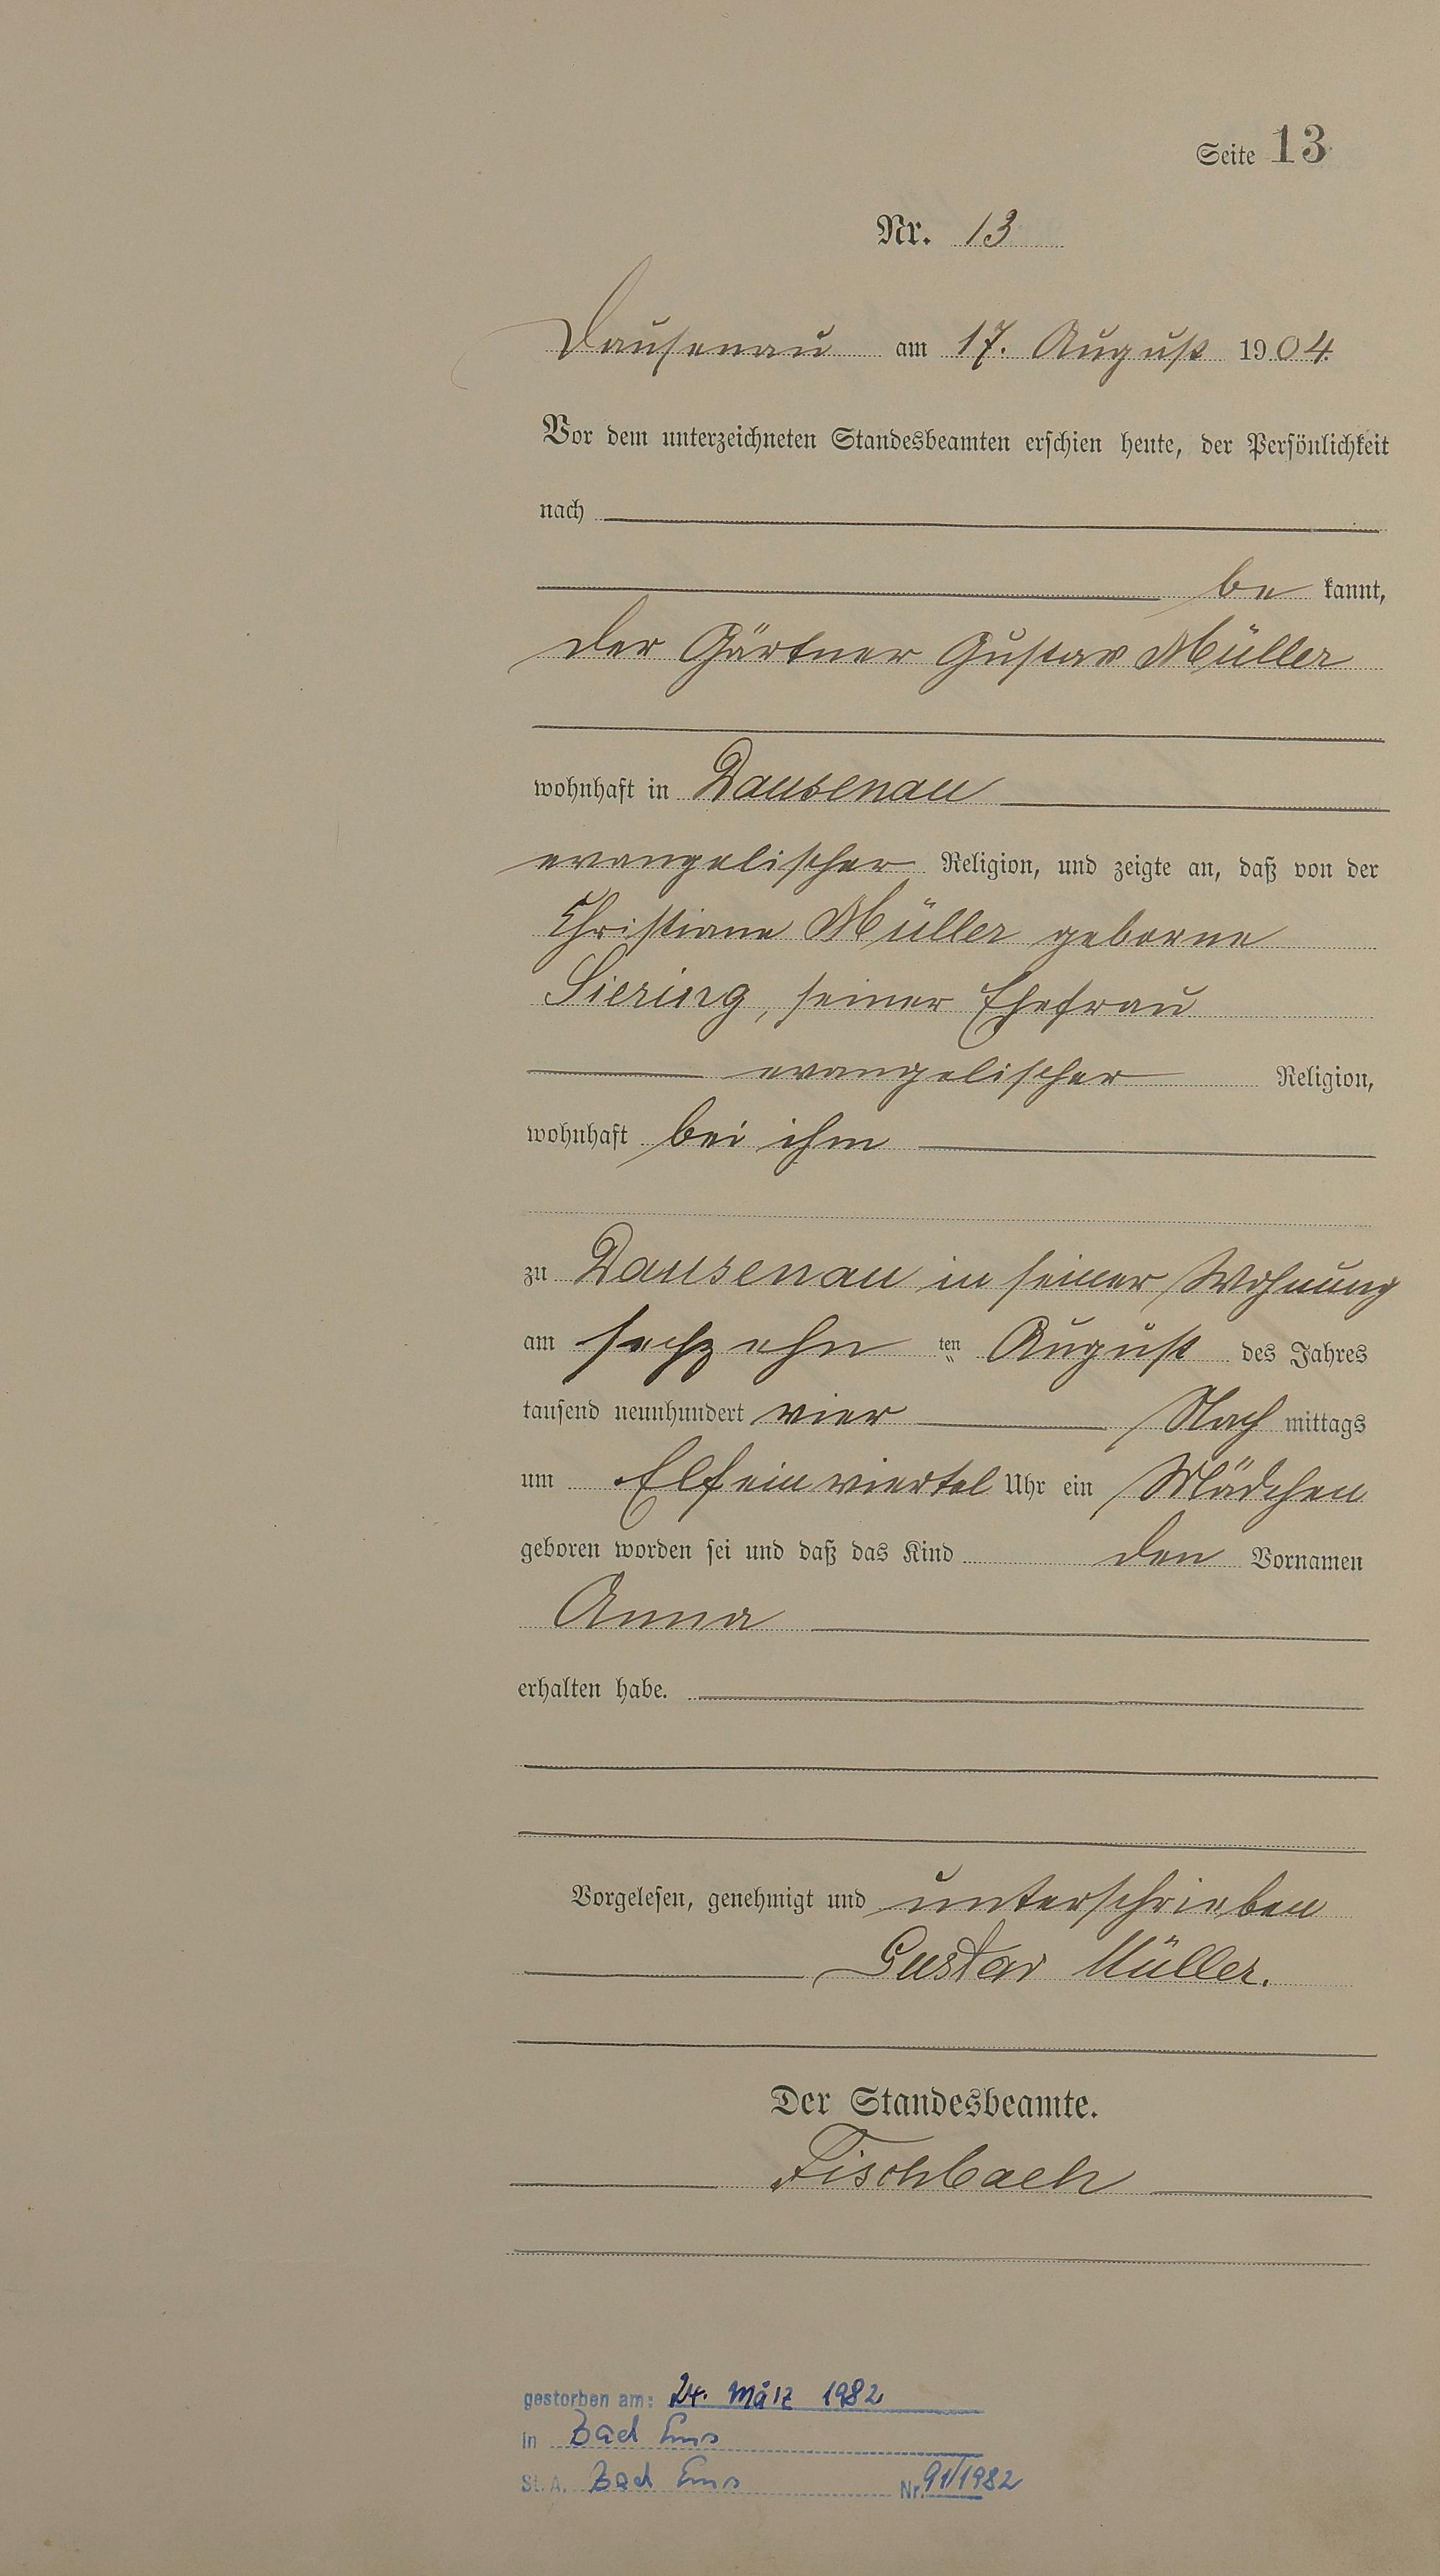 Seite 13
Nr. 13
Dausenau am 17. August 1904.
Vor dem unterzeichneten Standesbeamten erschien heute, der Persönlichkeit
nach
be kannt,
der Gärtner Gustav Müller
wohnhaft in Dausenau
evangelischer Religion, und zeigte an, daß von der
Christiane Müller geborne
Siering, seiner Ehefrau
evangelischer Religion,
wohnhaft bei ihm
zu Dausenau in seiner Wohnung
am sechzehn ten August des Jahres
tausend neunhundert vier Nach mittags
um Elf ein viertel Uhr ein Mädchen
geboren worden sei und daß das Kind den Vornamen
Anna
erhalten habe.
Vorgelesen, genehmigt und unterschrieben
Gustav Müller.
Der Standesbeamte.
Fischbach
gestorben am: 24. März 1982
in Bad Ems
St. A. Bad Ems Nr. 91/1982